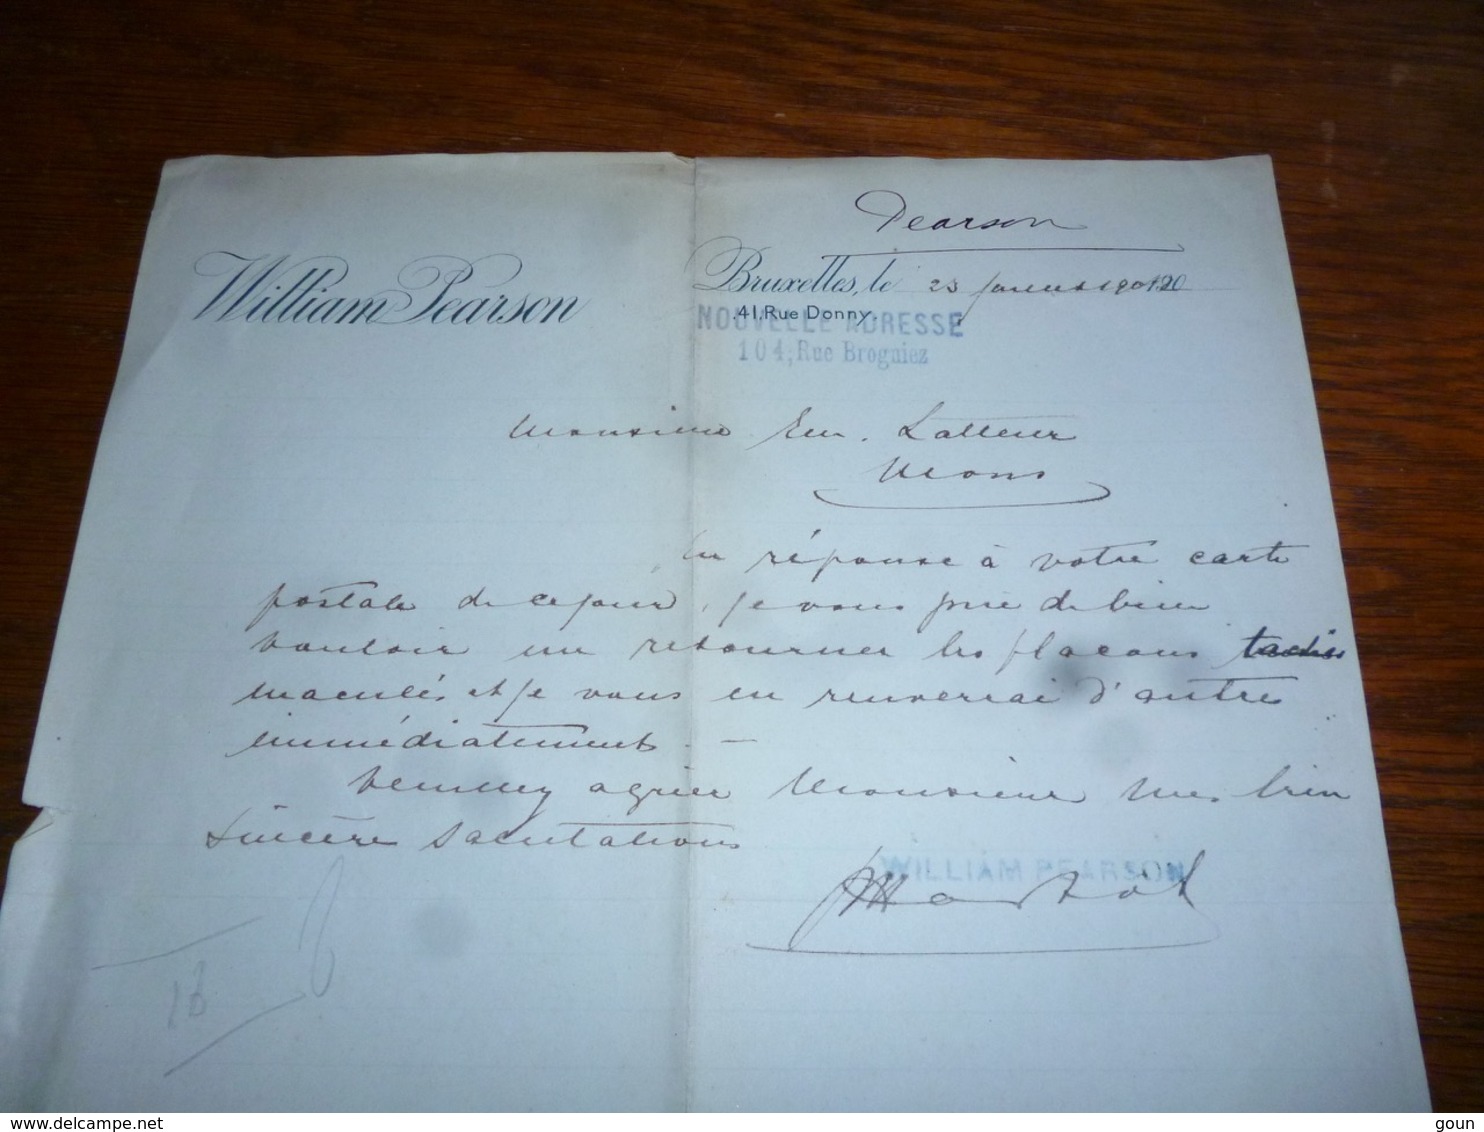 Pearson
William Pearson
Bruxelles, le 23 190120
41, Rue Donny.
NOUVELLE ADRESSE
104, Rue Brogniez
Monsieur Em. Latteur
Mons
En réponse à votre carte
postale de ce jour, je vous prie de bien
vouloir me retourner les flacons
maculés et je vous en renverrai d'autres
immédiatement. —
Veuillez agréer Monsieur mes bien
sincères salutations
WILLIAM PEARSON
18
delcampe.net
goun